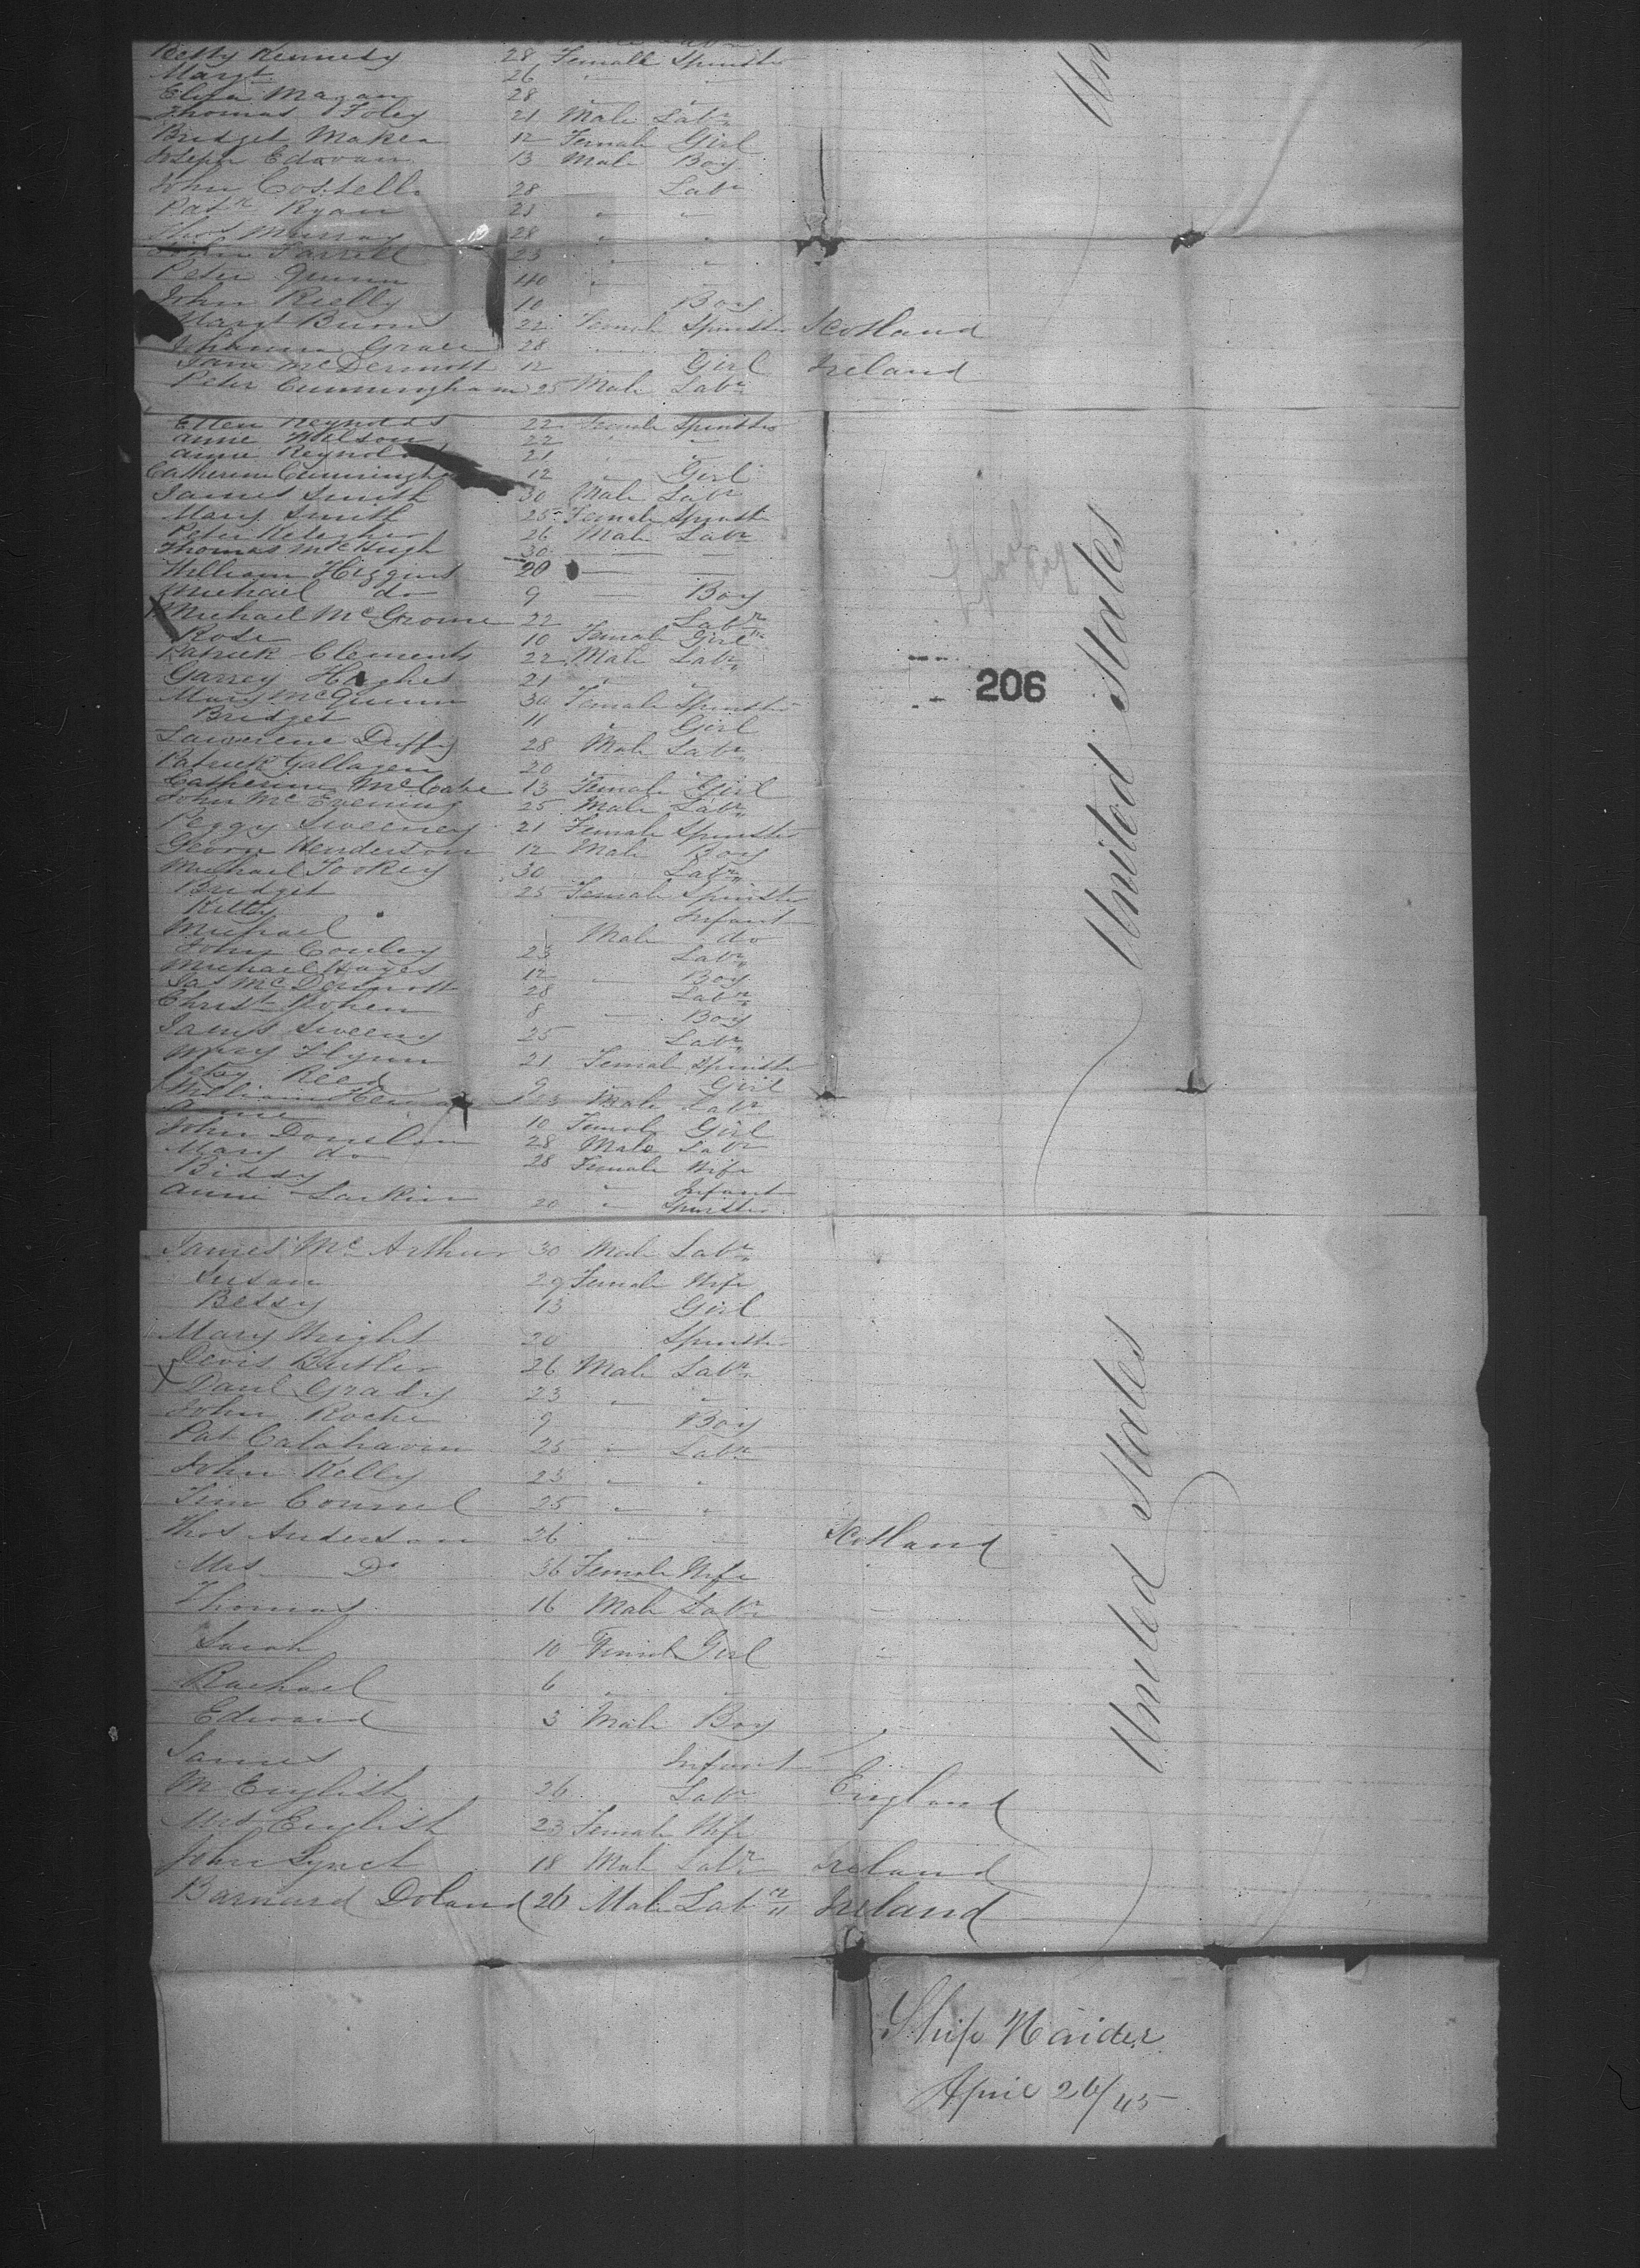 Betty Kennedy 28 Female Spinster
Margt 26 " "
Eliza Magan 28 " "
Thomas Foley 21 Male Labr
Bridget Maken 12 Female Girl
Joseph 13 Male Boy
John Costello 28 — Labr
Patk Ryan 23 " "
Thos Murray 28 " "
John Farrell 23 " "
Peter 40 "
John Rielly 10 Boy
Margt Burns 22 Female Spinster Scotland
Johanna Grace 28
Jane McDermott 12 Girl Ireland
Peter Cunningham 25 Male Labr
Ellen Reynolds 22 Female Spinster
Anne Wilson 22 " "
Anne Reynolds 21 "
Catherine Cunningham 12 " Girl
James Smith 30 Male Labr
Mary Smith 25 Female Spinster
Peter 26 Male Labr
Thomas McHugh 30 — —
William Higgins 20 — —
Michael do 9 — Boy
Michael McGrome 22 Labr
Rose 10 Female Girl
Patrick Clements 22 Male Labr
Garrey Hughes 21 " "
Mary McGuinn 30 Female Spinster
Bridget 11 " Girl
Lawrence Duffy 28 Male Labr
Patrick Gallagen 20
Catherine McCabe 13 Female Girl
John McEvening 25 Male Labr
Peggy Sweeney 21 Female Spinster
George Henderson 12 Male Boy
Michael Tookey 30 Labr
Bridget 25 Female Spinster
Kitty Infant
Michael Male do
John Conley 23 Labr
Michael Hayes 12 " Boy
Jas McDermott 28 Labr
Christ 8 — Boy
James Sweeny 25 Labr
Mary Flynn 21 Female Spinster
Reed 9 Girl
William 23 Male Labr
Anne 10 Female Girl
John Donelon 28 Male Labr
Mary do 28 Female Wife
Biddy " Infant
Anne Larkin 20 " Spinster
James McArthur 30 Male Labr
Susan 29 Female Wife
Bessy 13 Girl
Mary Wright 20 Spinster
Devis Butler 26 Male Labr
Danl Grady 23 " "
John Roche 9 Boy
Pat Calahavin 25 " Labr
John Kelly 23 " "
Tim Connel 25 " "
Thos Anderson 26 — — Scotland
Mrs Do 36 Female Wife "
Thomas 16 Male Labr "
Sarah 10 Female Girl "
Rachael 6 " "
Edward 3 Male Boy "
James Infant
M English 26 Labr England
Mrs English 23 Female Wife
John Lynch 18 Male Labr Ireland
Barnard Doland 26 Male Labr Ireland
206
United States
United States
Ship Haidee
April 26/45